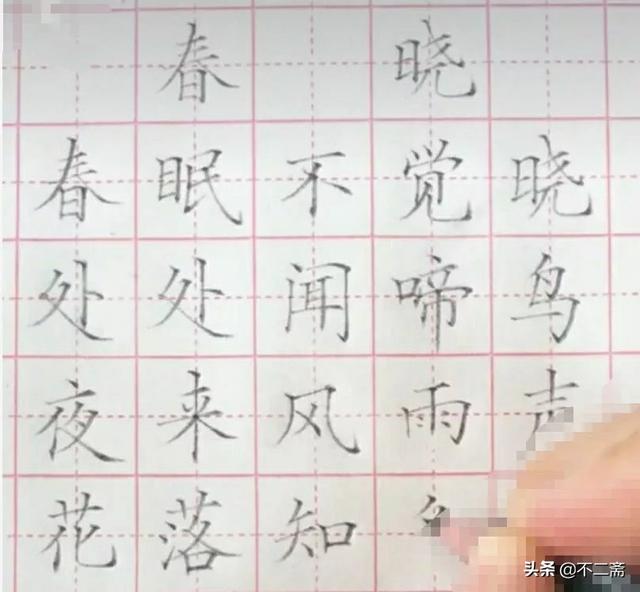 春晓
春眠不觉晓
处处闻啼鸟
夜来风雨声
花落知
头条 @不二斋